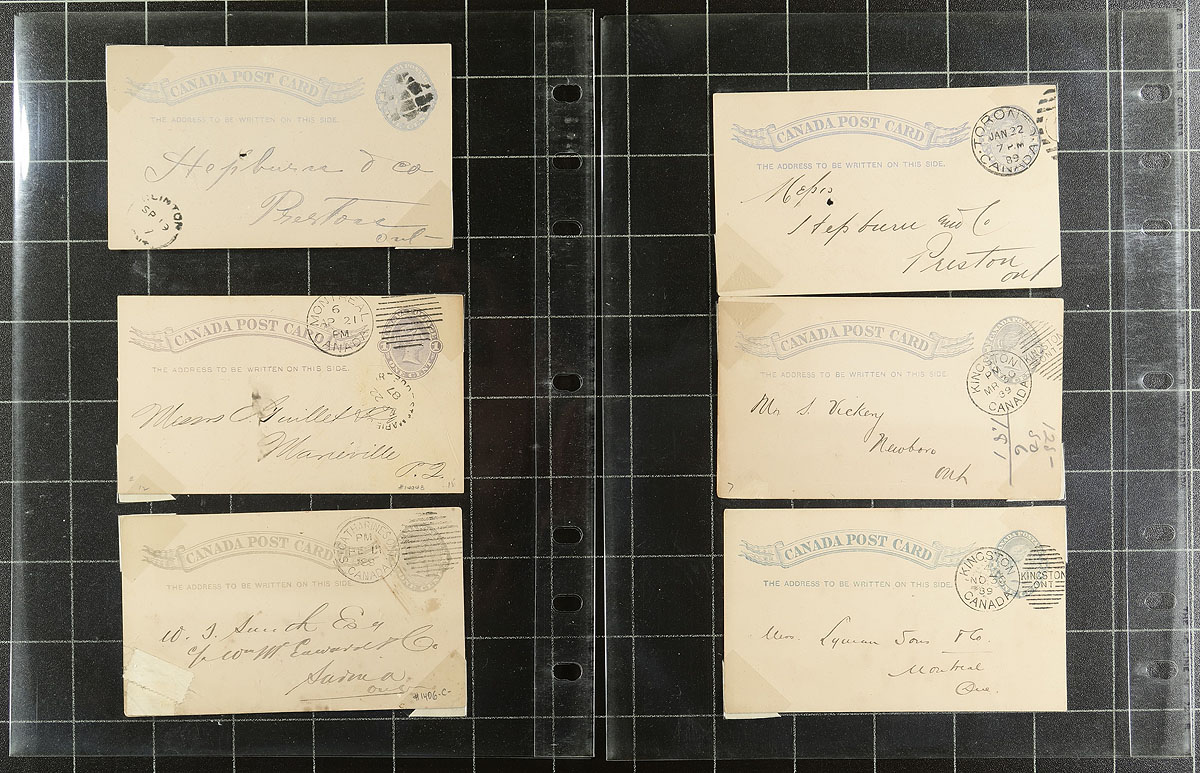 CANADA POST CARD
THE ADDRESS TO BE WRITTEN ON THIS SIDE.
Hepburn & Co
Preston
Ont
CLINTON
SP 19
CANADA POST CARD
MONTREAL
6
AP 21
PM
CANADA
THE ADDRESS TO BE WRITTEN ON THIS SIDE.
Messrs C. Guillet &
Marieville
P.Q.
CANADA POST CARD
PM
CANADA
THE ADDRESS TO BE WRITTEN ON THIS SIDE.
W. J. Smith Esq
c/o Wm W. Edwards & Co
Sarnia
Ont
#1406-C-
CANADA POST CARD
TORONTO
JAN 22
7 PM
89
CANADA
THE ADDRESS TO BE WRITTEN ON THIS SIDE.
Messrs
Hepburn and Co
Preston
Ont
CANADA POST CARD
KINGSTON
PM
MR
89
CANADA
THE ADDRESS TO BE WRITTEN ON THIS SIDE.
Mr S. Vickery
Newboro
Ont
7
CANADA POST CARD
KINGSTON
NO
89
CANADA
KINGSTON
ONT
THE ADDRESS TO BE WRITTEN ON THIS SIDE.
Mess. Lyman Sons & Co.
Montreal
Que.